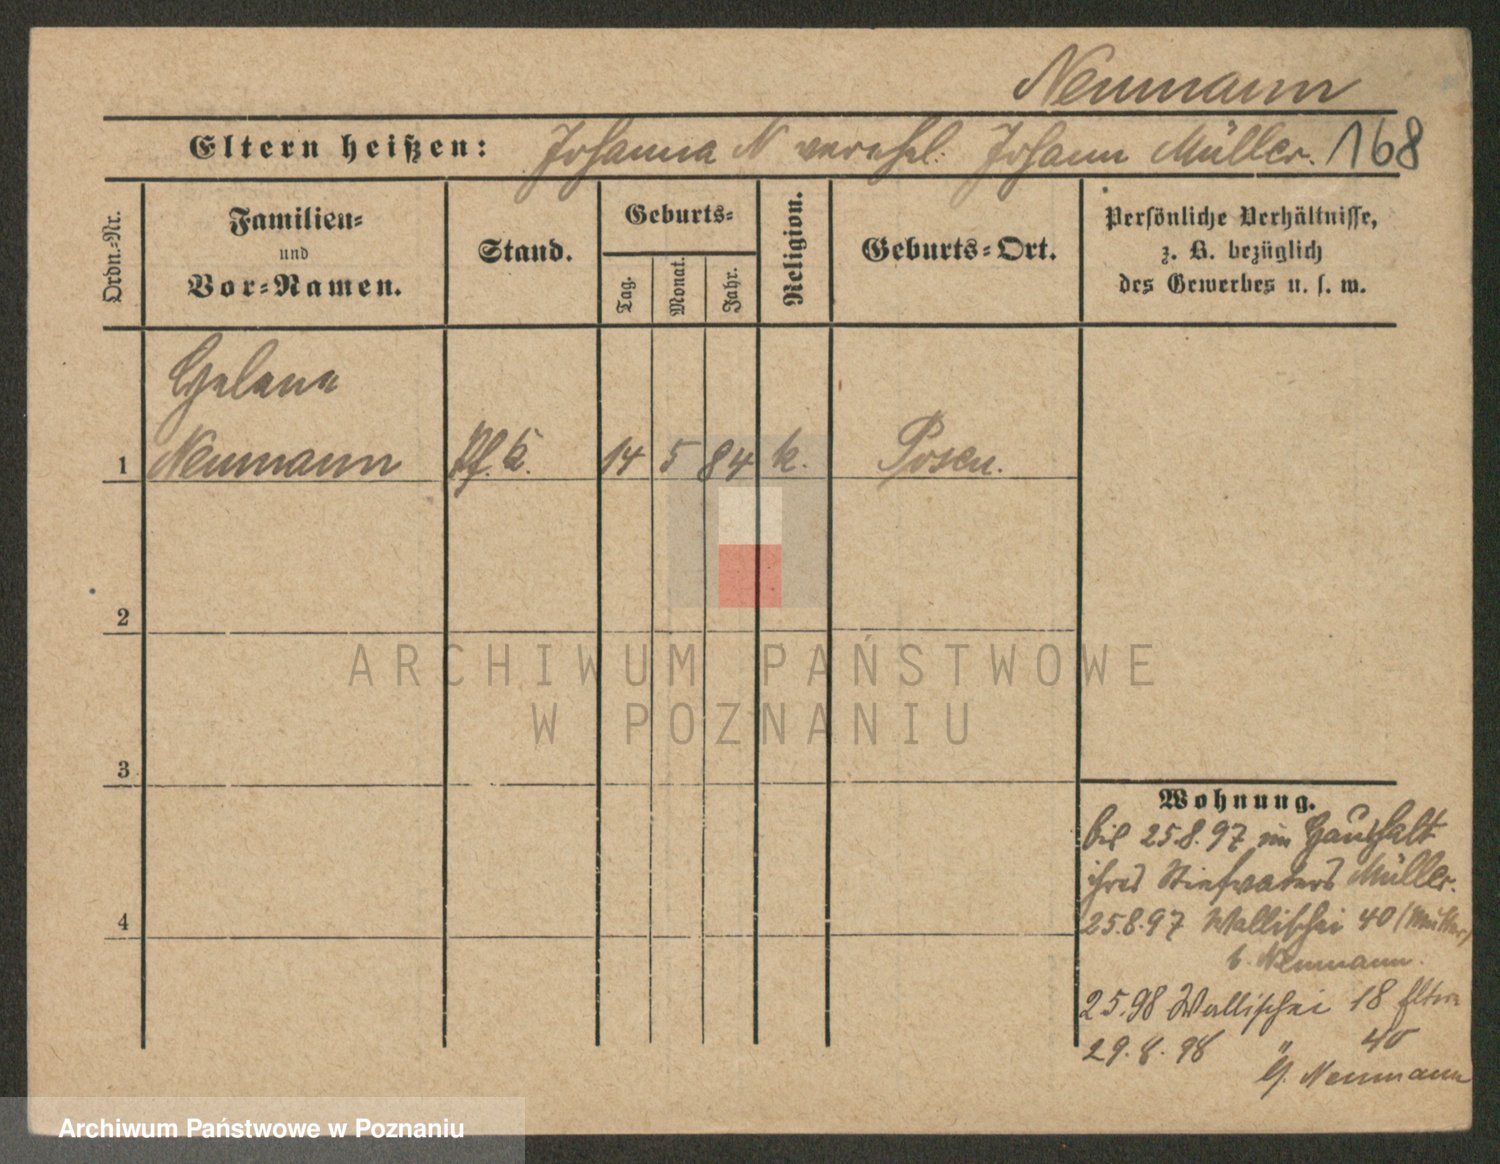 Neumann
Eltern heißen: Johanna N verehel. Johann Müller. 168
Ordn.-Nr.
Familien-
und
Vor-Namen.
Stand.
Geburts-
Tag.
Monat.
Jahr.
Religion.
Geburts-Ort.
Persönliche Verhältnisse,
z. B. bezüglich
des Gewerbes u. s. w.
Helene
1 Neumann 14 5 84 k. Posen.
2
3
4
Wohnung.
bis 25.8.97 im Haushalt
ihres Stiefvaters Müller.
25.8.97 Wallischei 40 (Mutter)
b. Neumann.
2.5.98 Wallischei 18 Eltern
29.8.98 " 40
Neumann
ARCHIWUM PAŃSTWOWE
W POZNANIU
Archiwum Państwowe w Poznaniu